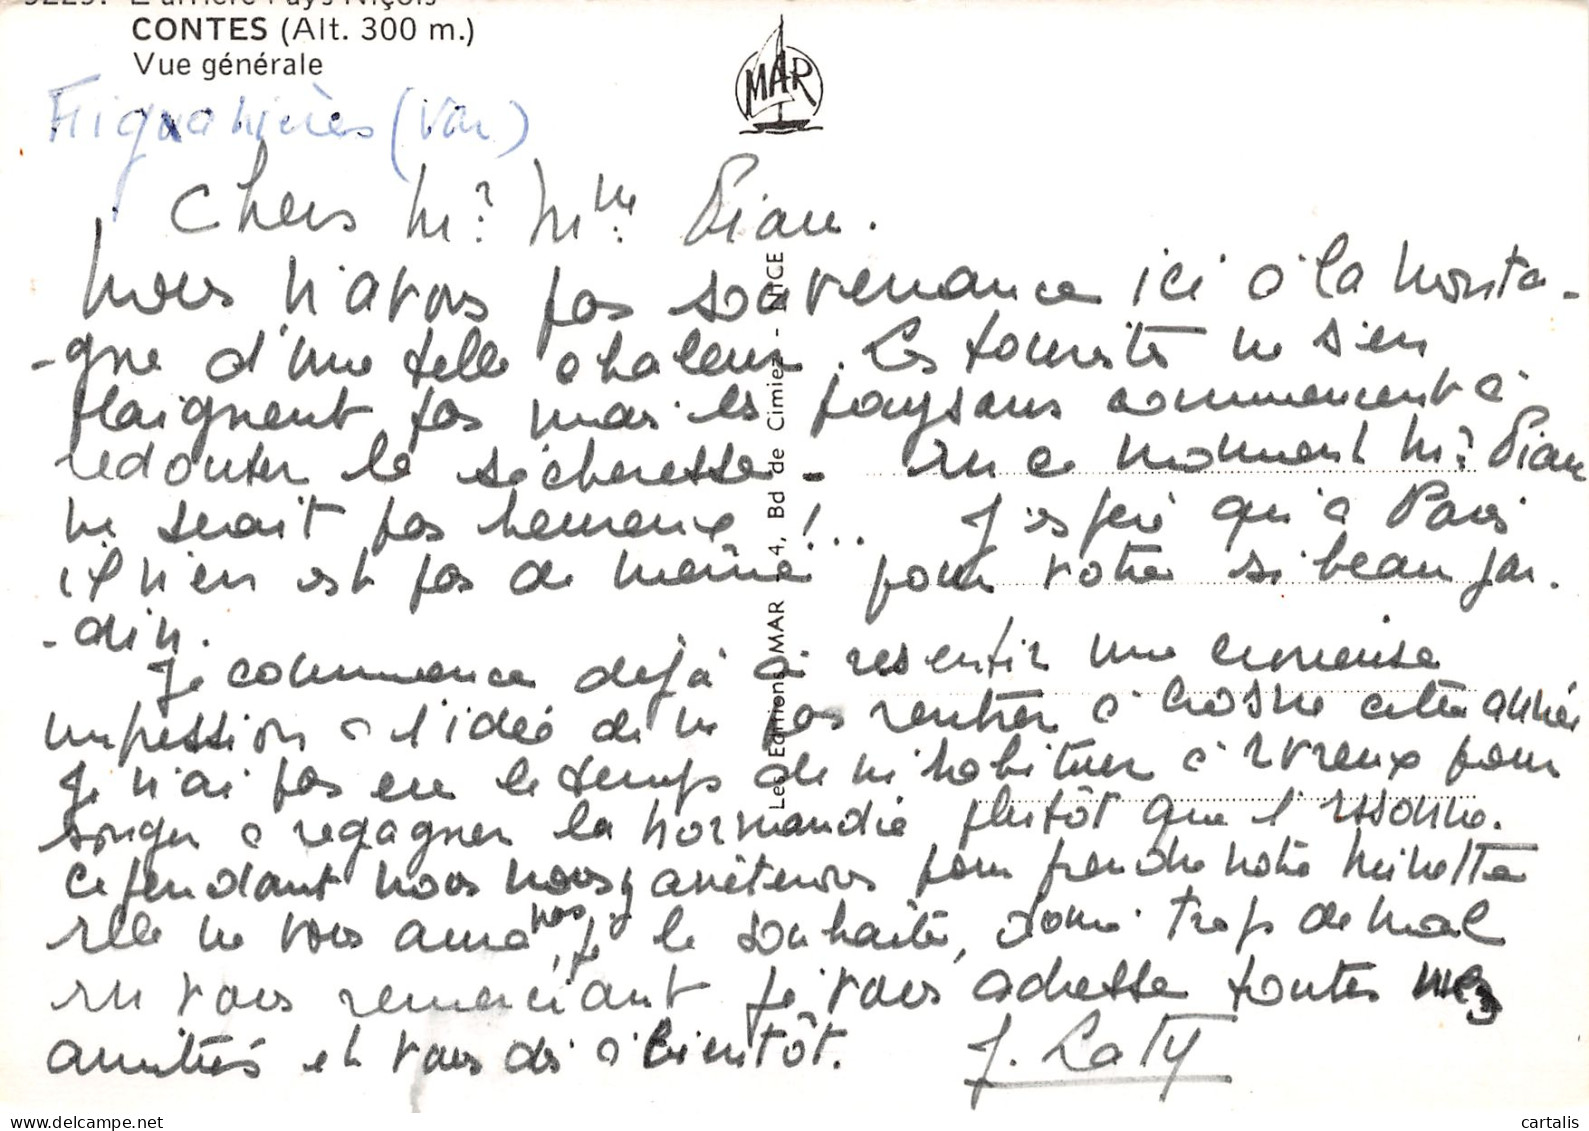 L'arrière Pays Niçois
CONTES (Alt. 300 m.)
Vue générale
MAR
(Var)
Chers Mr. Mme Pian.
Nous n'avons pas souvenance ici à la monta-
-gne d'une telle chaleur. Les touristes ne s'en
plaignent pas mais les paysans commencent à
redouter la sécheresse. En ce moment Mr. Pian
ne serait pas heureux !... J'espère qu'à Paris
il n'en est pas de même pour votre si beau jar-
-din.
Je commence déjà à ressentir une curieuse
impression à l'idée de ne pas rentrer à Crosne cette année
Je n'ai pas eu le temps de m'habituer à Evreux pour
songer à regagner la Normandie plutôt que l'Essonne.
Cependant nous nous y arrêterons pour prendre notre Minette
Elle ne vous aura pas, je le souhaite, donné trop de mal
En vous remerciant je vous adresse toutes mes
amitiés et vous dis à bientôt. J. Laty
Les Editions MAR - 4, Bd de Cimiez - NICE